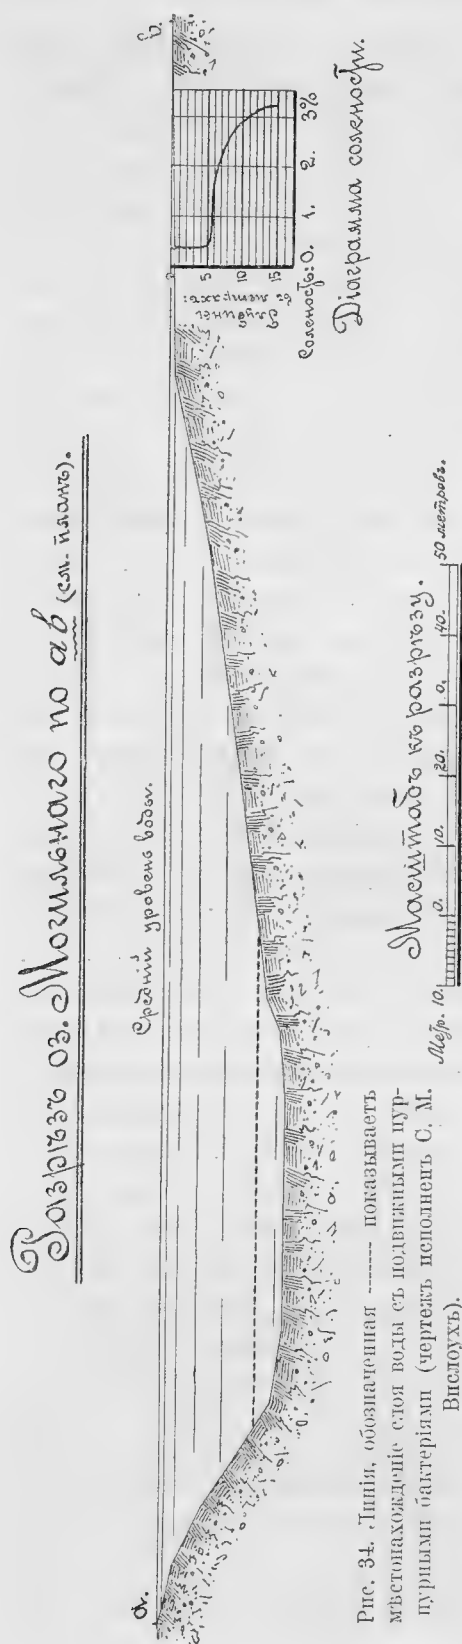 Разрѣзъ оз. Могильнаго по ab (см. планъ).
а.
Средній уровень воды.
b.
Глубина
въ метрахъ:
5
10
15
Соленость: 0. 1. 2. 3%
Діаграмма солености.
Масштабъ къ разрѣзу.
Метр. 10. 0. 10. 20. 0. 40. 50 метровъ.
Рис. 34. Линія, обозначенная ------- показываетъ
мѣстонахожденіе слоя воды съ подвижными пур-
пурными бактеріями (чертежъ исполненъ С. М.
Вислоухъ).